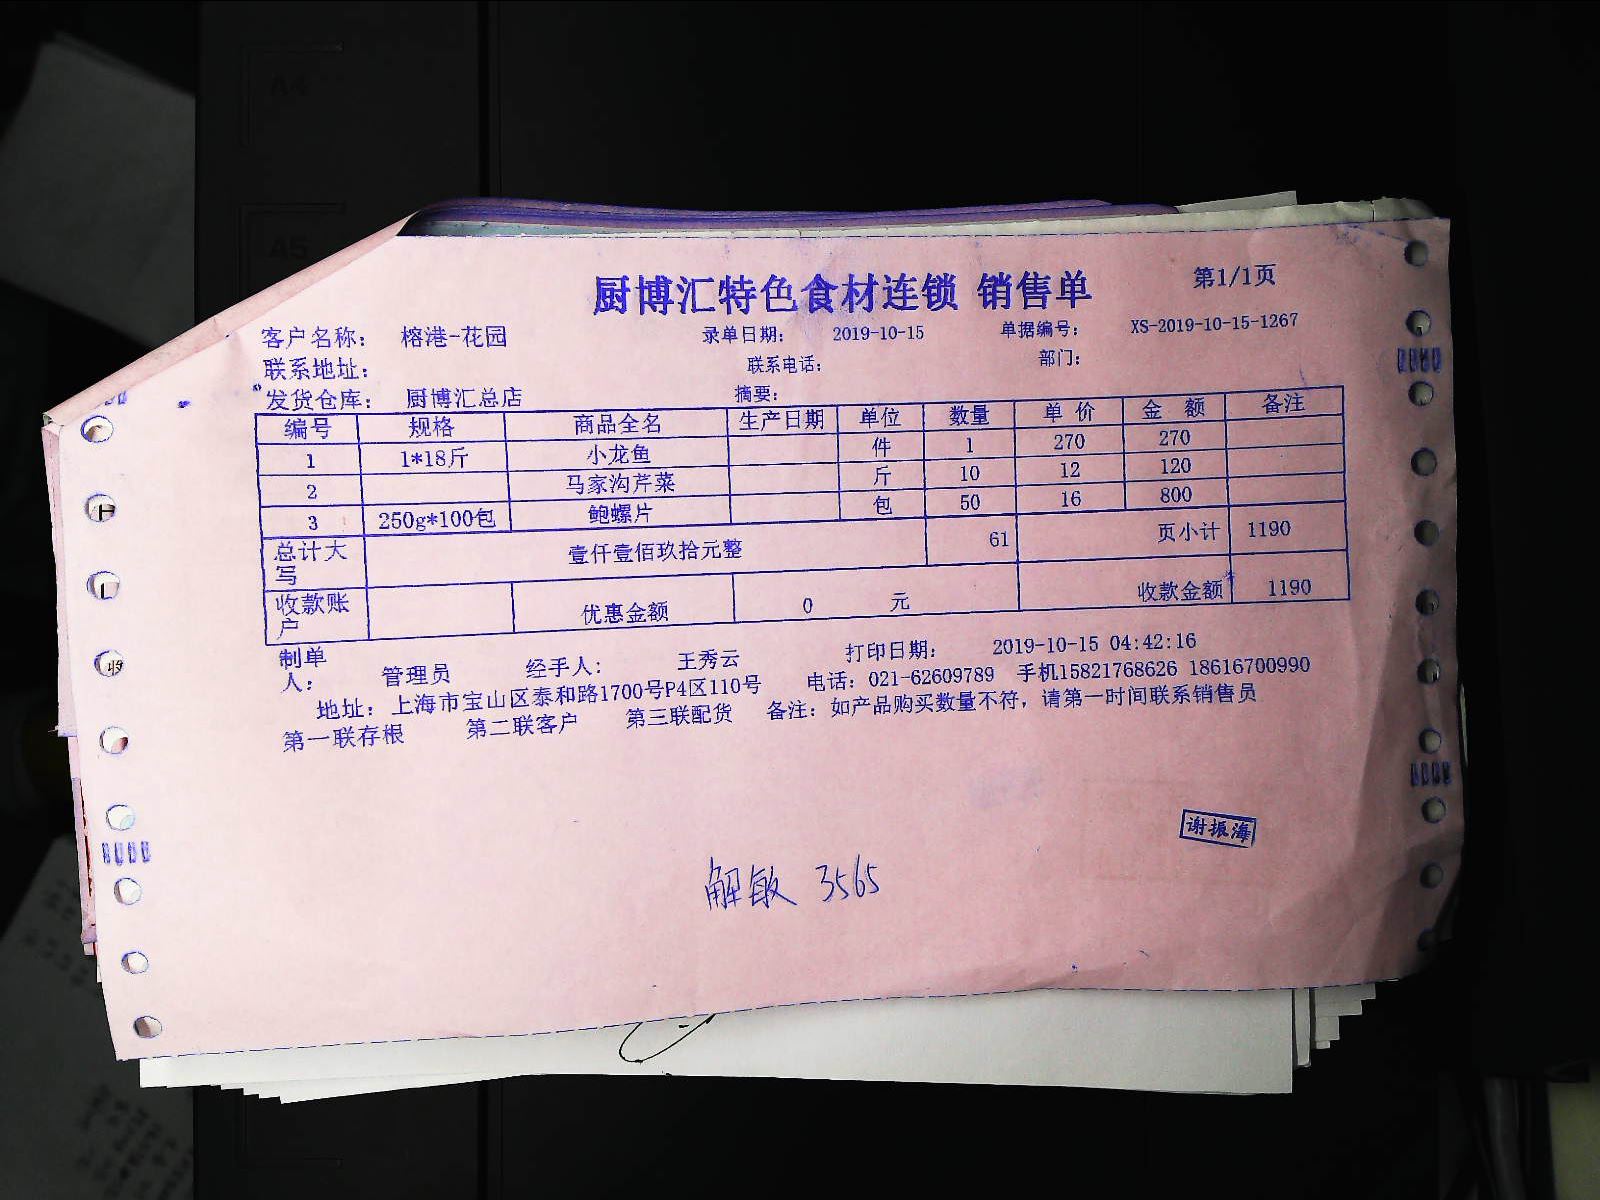 A4
A5
厨博汇特色食材连锁 销售单 第1/1页
客户名称: 榕港-花园 录单日期: 2019-10-15 单据编号: XS-2019-10-15-1267
联系地址: 联系电话: 部门:
发货仓库: 厨博汇总店 摘要:
编号 规格 商品全名 生产日期 单位 数量 单价 金额 备注
1 1*18斤 小龙鱼 件 1 270 270
2 马家沟芹菜 斤 10 12 120
3 250g*100包 鲍螺片 包 50 16 800
总计大写 壹仟壹佰玖拾元整 61 页小计 1190
收款账户 优惠金额 0 元 收款金额 1190
制单人: 管理员 经手人: 王秀云 打印日期: 2019-10-15 04:42:16
地址: 上海市宝山区泰和路1700号P4区110号 电话: 021-62609789 手机15821768626 18616700990
第一联存根 第二联客户 第三联配货 备注: 如产品购买数量不符, 请第一时间联系销售员
谢振海
解敏 3565